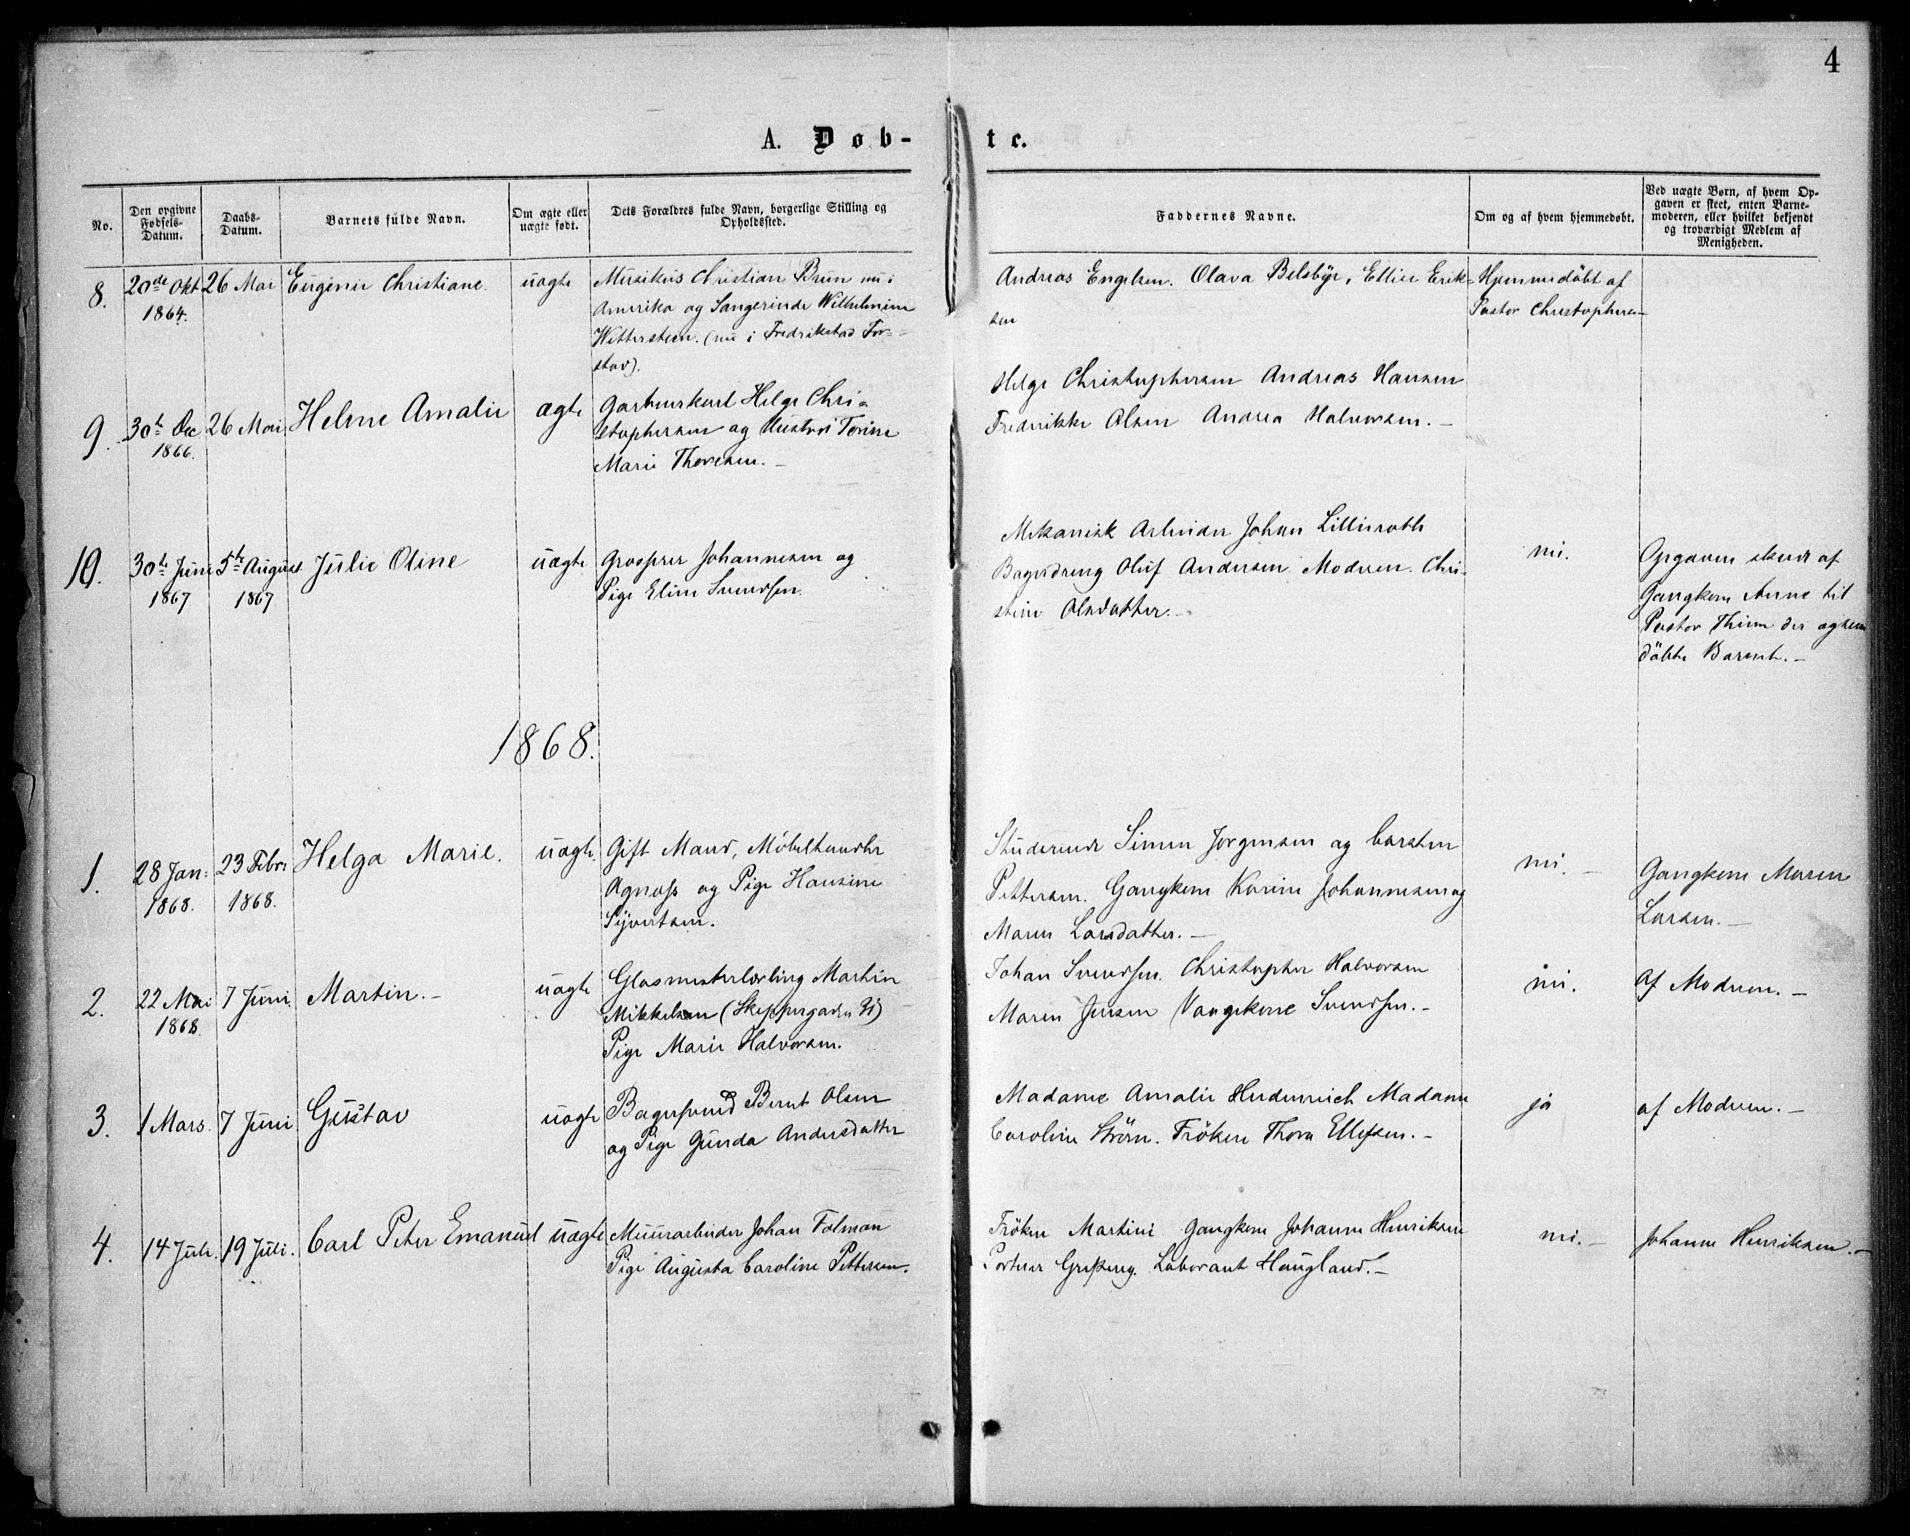 4
A. Døb-
te.
No.
Den opgivne Fødsels-Datum.
Daabs-Datum.
Barnets fulde Navn.
Om ægte eller uægte født.
Dets Forældres fulde Navn, borgerlige Stilling og Opholdssted.
Faddernes Navne.
Om og af hvem hjemmedøbt.
Ved uægte Børn, af hvem Op-
gaven er skeet, enten Barne-
moderen, eller hvilket bekjendt
og troværdigt Medlem af
Menigheden.
8. 20de Okt 1864. 26 Mai Eugenie Christiane. uægte
Musikus Christian Brun nu i
Amerika og Sangerinde Wilhelmine
Wittersteen. (nu i Fredrikstad For-
stad).
Andreas Engelsen. Olava Belsbye, Ellise Erik-
sen
Hjemmedöbt af
Pastor Christophersen
9. 30te Dec 1866. 26 Mai Helene Amalie ægte
Garverkarl Helge Chri-
stophersen og Hustru Torine
Marie Thoresen. -
Helge Christophersen Andreas Hansen
Frederikke Olsen Andrea Halvorsen. -
10. 30te Juni 1867 5te August 1867 Julie Oline uægte
Grosserer Johannesen og
Pige Eline Svendsen.
Mekanisk Arbeider Johan Lillieroth
Bagerdreng Oluf Andersen Moderen. Chri-
stine Olsdatter. -
nei.
Opgaven skeede af
Gangkone Anne til
Pastor Thiem der ogsaa
döbte Barnet. -
1868.
1. 28 Jan: 1868. 23 Febr: 1868. Helga Marie. uægte.
Gift Mand, Møbelhandler
Agnæss og Pige Hansine
Syvertsen.
Studerende Simen Jørgensen og Carsten
Pettersen. Gangkone Karine Johannesen og
Maren Larsdatter. -
nei. -
Gangkone Maren
Larsen. -
2. 22 Mai 1868. 7 Juni. Martin. - uægte
Glasmesterlærling Martin
Mikkelsen (Skippergaden 31)
Pige Marie Halvorsen.
Johan Svendsen. Christopher Halvorsen
Maren Jensen Vaagekone Svendsen. -
nei.
Af Moderen. -
3. 1 Mars. 7 Juni Gustav uægte
Bagersvend Bernt Olsen
og Pige Gunda Andersdatter
Madame Amalie Heidenreich Madame
Caroline Strøm. Fröken Thora Ellefsen. -
ja
af Moderen. -
4. 14 Juli. 19 Juli. Carl Peter Emanuel uægte
Muurarbeider Johan Falman
Pige Augusta Caroline Pettersen.
Fröken Martini Gangkone Johanne Henriksen
Portner Laborant Haugland. -
nei. -
Johanne Henriksen. -